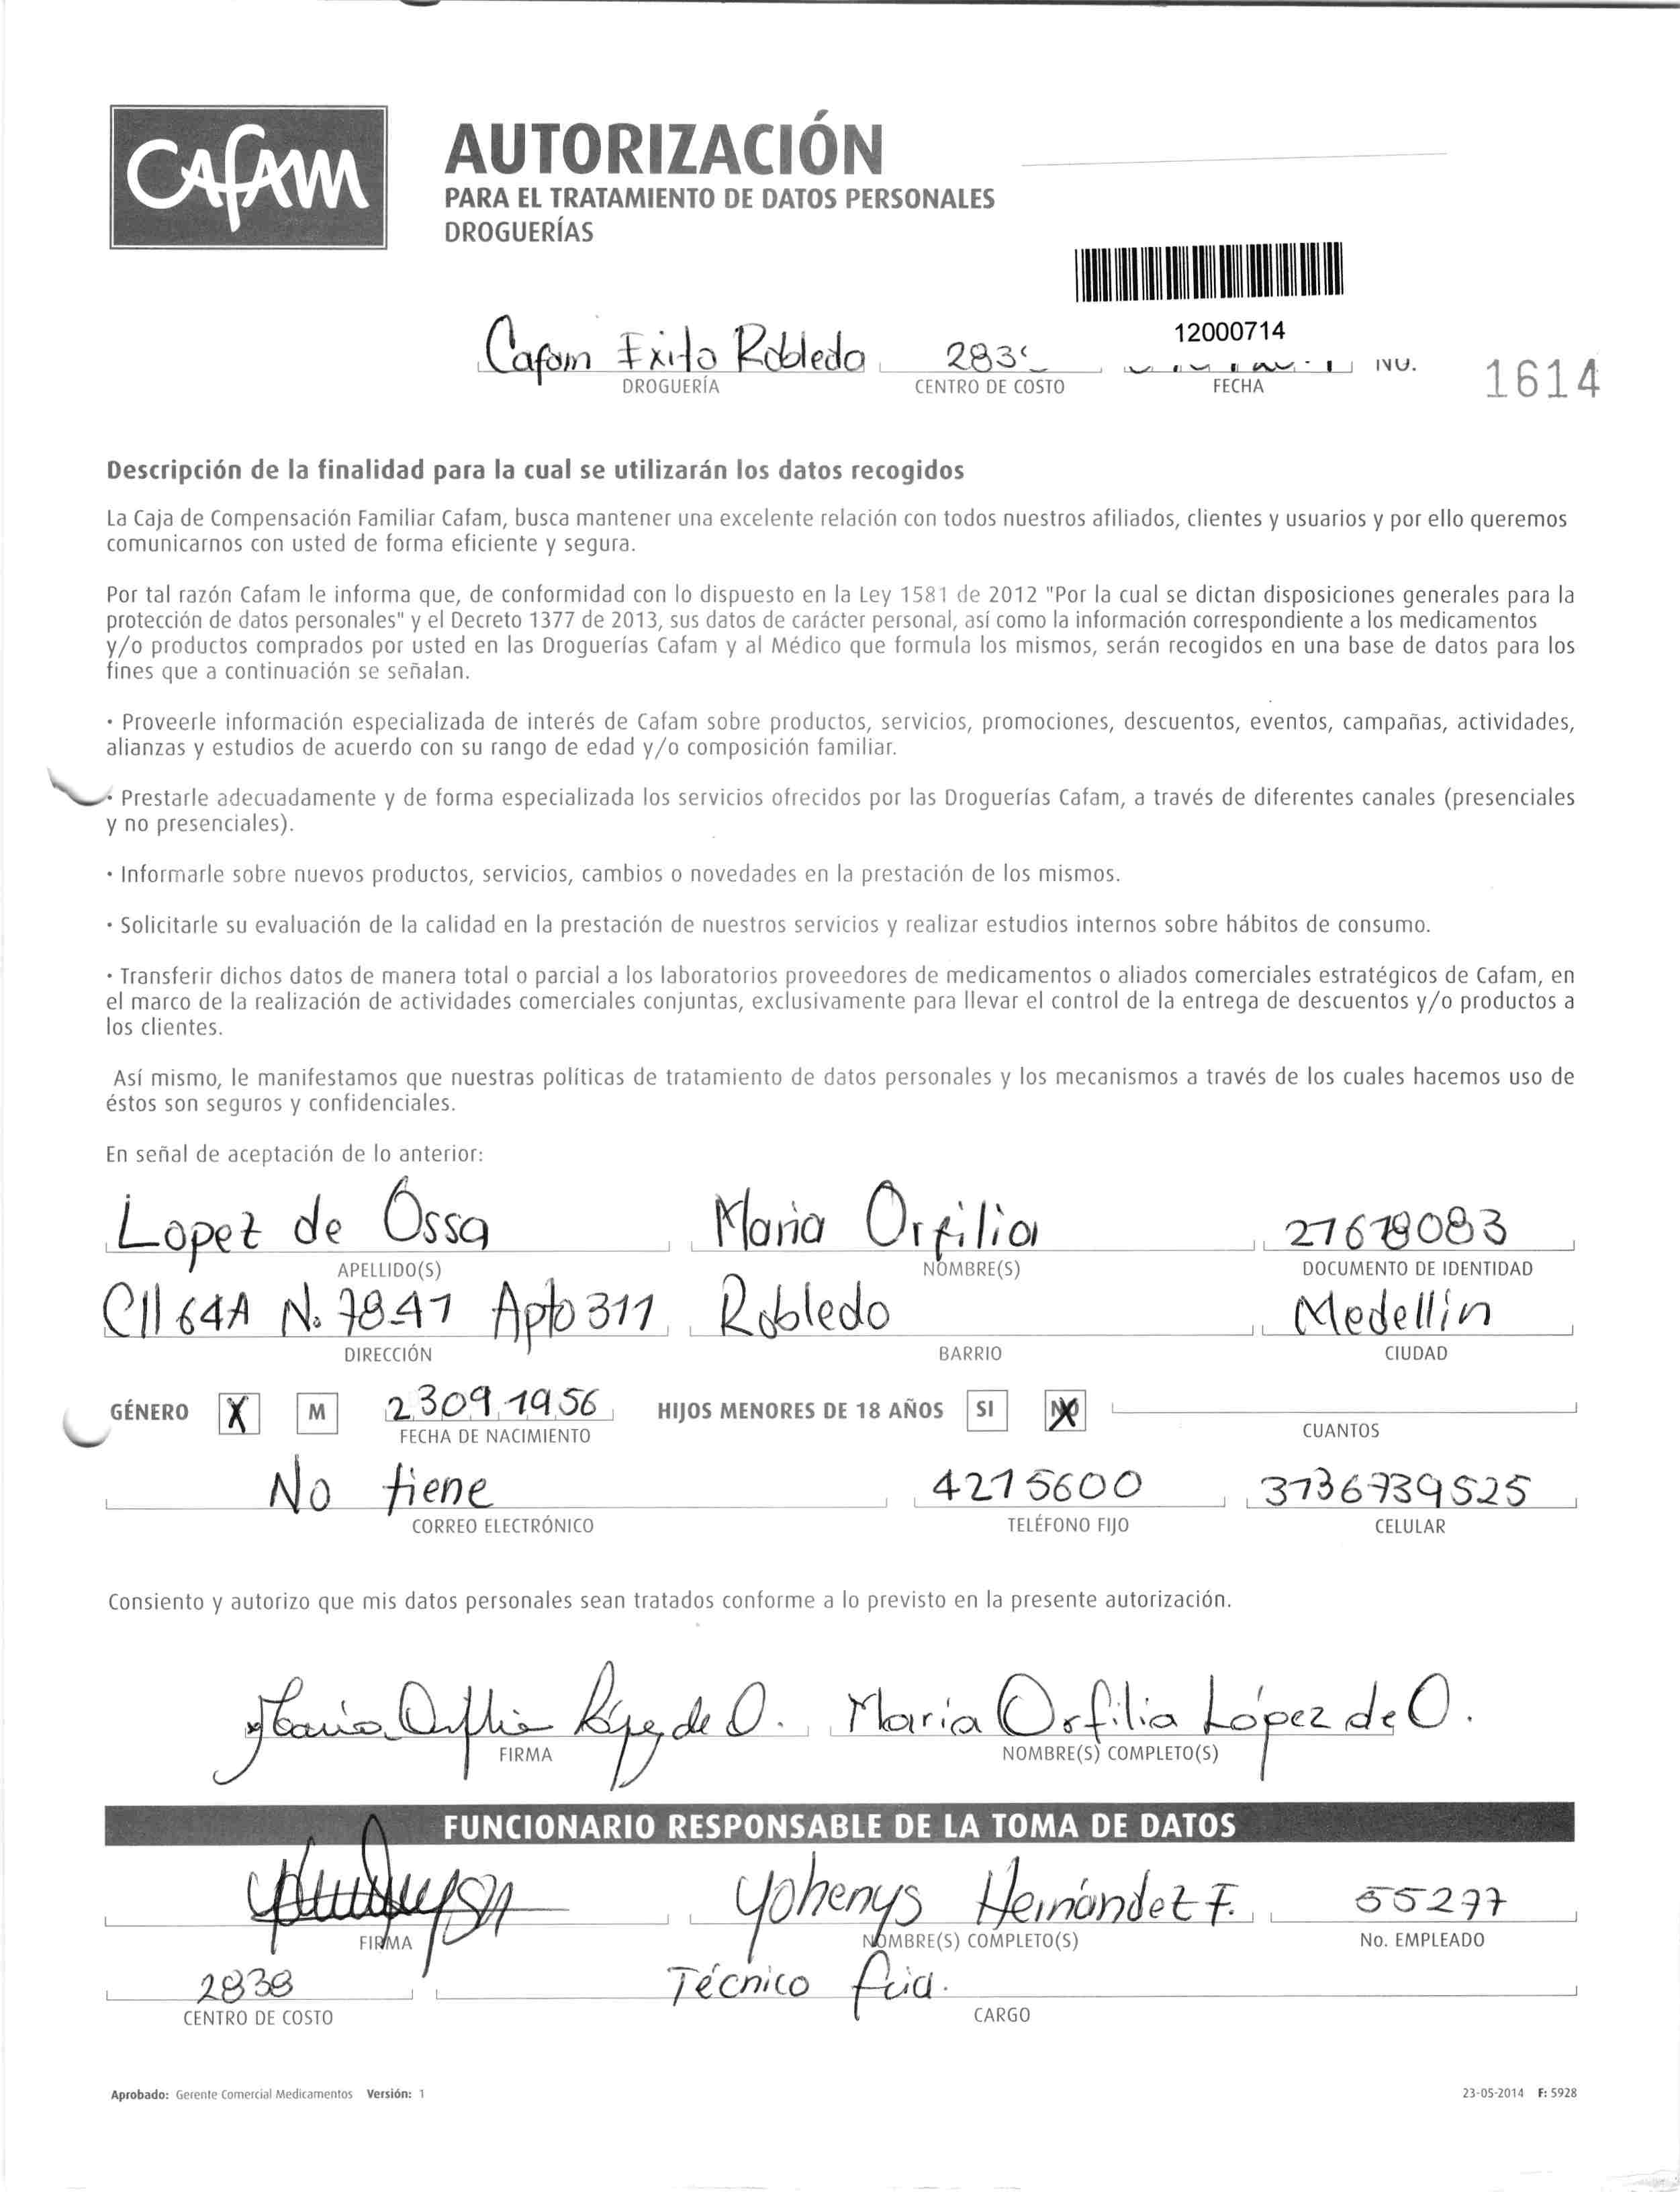 Cafam
AUTORIZACIÓN
PARA EL TRATAMIENTO DE DATOS PERSONALES
DROGUERÍAS
12000714
Cafam Exito Robledo 283 NO. 1614
DROGUERÍA CENTRO DE COSTO FECHA
Descripción de la finalidad para la cual se utilizarán los datos recogidos
La Caja de Compensación Familiar Cafam, busca mantener una excelente relación con todos nuestros afiliados, clientes y usuarios y por ello queremos
comunicarnos con usted de forma eficiente y segura.
Por tal razón Cafam le informa que, de conformidad con lo dispuesto en la Ley 1581 de 2012 "Por la cual se dictan disposiciones generales para la
protección de datos personales" y el Decreto 1377 de 2013, sus datos de carácter personal, así como la información correspondiente a los medicamentos
y/o productos comprados por usted en las Droguerías Cafam y al Médico que formula los mismos, serán recogidos en una base de datos para los
fines que a continuación se señalan.
· Proveerle información especializada de interés de Cafam sobre productos, servicios, promociones, descuentos, eventos, campañas, actividades,
alianzas y estudios de acuerdo con su rango de edad y/o composición familiar.
· Prestarle adecuadamente y de forma especializada los servicios ofrecidos por las Droguerías Cafam, a través de diferentes canales (presenciales
y no presenciales).
· Informarle sobre nuevos productos, servicios, cambios o novedades en la prestación de los mismos.
· Solicitarle su evaluación de la calidad en la prestación de nuestros servicios y realizar estudios internos sobre hábitos de consumo.
· Transferir dichos datos de manera total o parcial a los laboratorios proveedores de medicamentos o aliados comerciales estratégicos de Cafam, en
el marco de la realización de actividades comerciales conjuntas, exclusivamente para llevar el control de la entrega de descuentos y/o productos a
los clientes.
Así mismo, le manifestamos que nuestras políticas de tratamiento de datos personales y los mecanismos a través de los cuales hacemos uso de
éstos son seguros y confidenciales.
En señal de aceptación de lo anterior:
Lopez de Ossa Maria Orfilia
APELLIDO(S) NOMBRE(S) DOCUMENTO DE IDENTIDAD
Cll 64A N. 78-47 Apto 311 Robledo Medellin
DIRECCIÓN BARRIO CIUDAD
GÉNERO X M 23091956 HIJOS MENORES DE 18 AÑOS SI NO
FECHA DE NACIMIENTO CUANTOS
No tiene 4215600 3136739525
CORREO ELECTRÓNICO TELÉFONO FIJO CELULAR
Consiento y autorizo que mis datos personales sean tratados conforme a lo previsto en la presente autorización.
Maria Orfilia López de O. Maria Orfilia López de O.
FIRMA NOMBRE(S) COMPLETO(S)
FUNCIONARIO RESPONSABLE DE LA TOMA DE DATOS
Yohenys Hernández F. 55277
FIRMA NOMBRE(S) COMPLETO(S) No. EMPLEADO
2838 Técnico fcia.
CENTRO DE COSTO CARGO
Aprobado: Gerente Comercial Medicamentos Versión: 1 23-05-2014 F: 5928